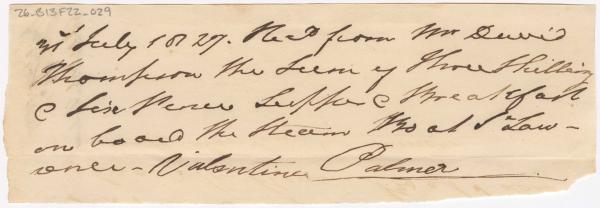 26-B13F22-029
31st July 1827. Recd from Mr David
Thompson the Sum of Three Shilling
& Six Pence Supper & Breakfast
on board the Steam Boat St Law-
rence - Valentine Palmer